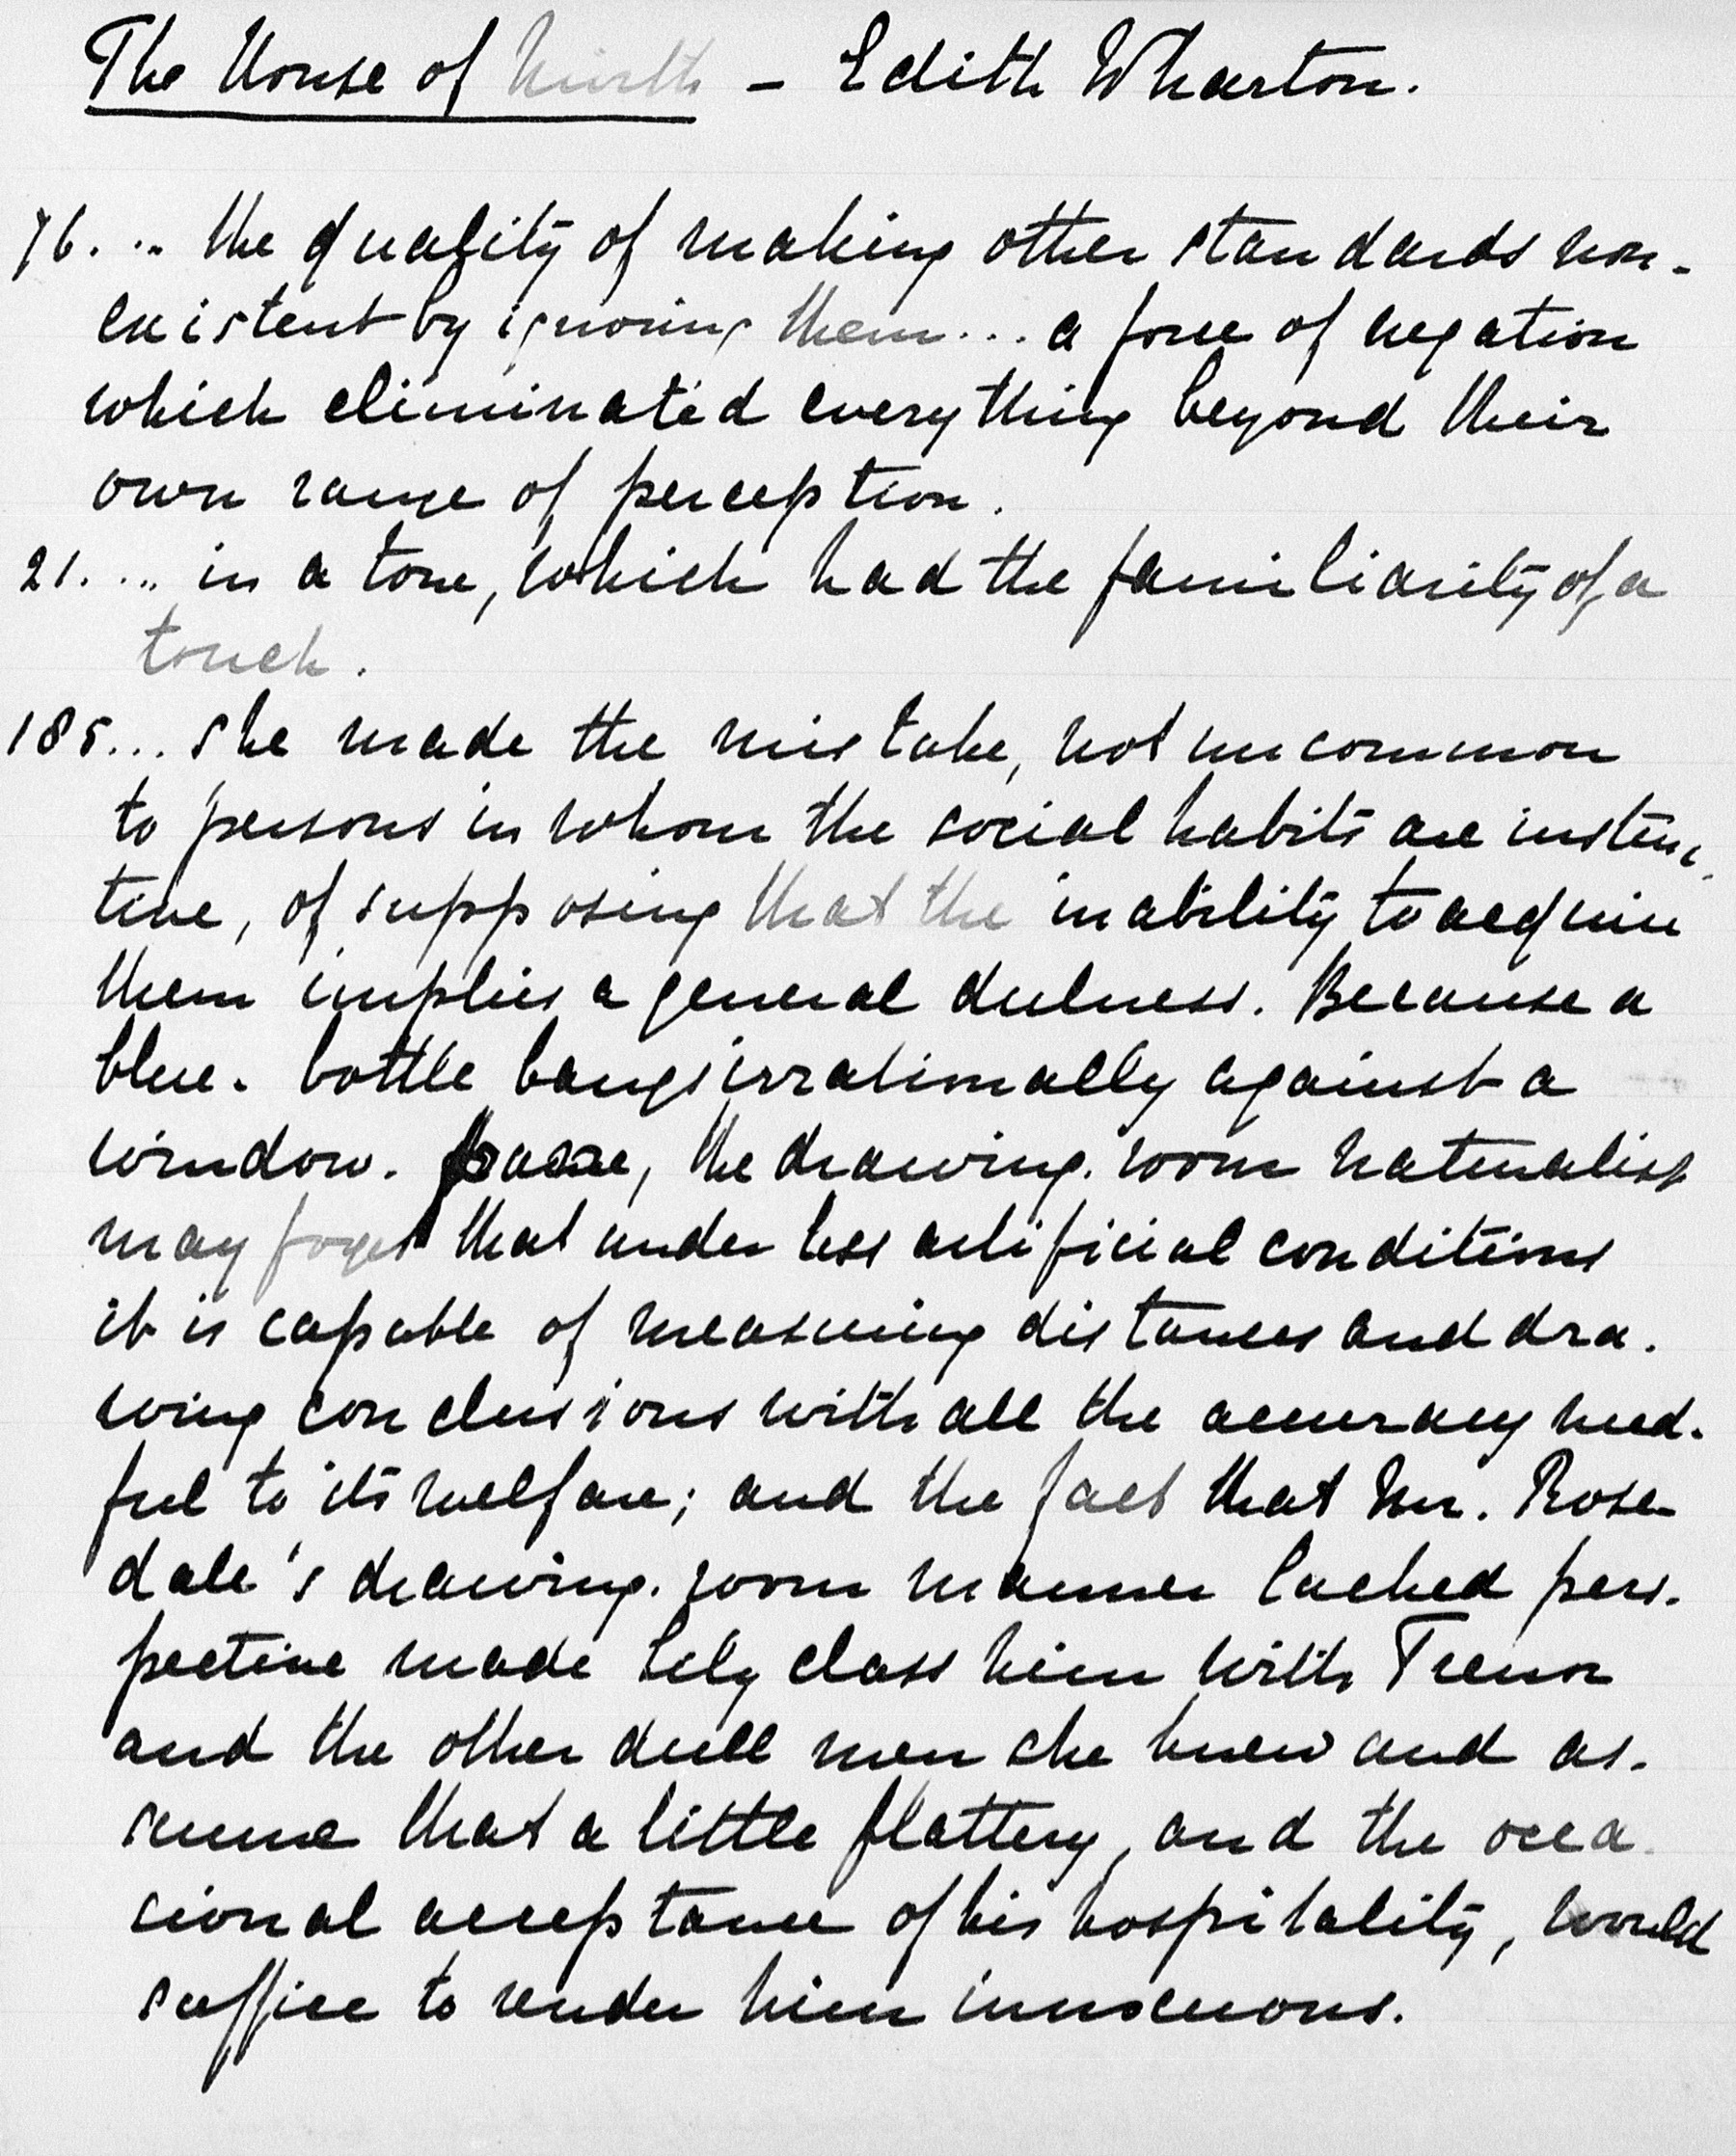 The House of Mirth – Edith Wharton.
76. ... the quality of making other standards non-
existent by ignoring them... a force of negation
which eliminated everything beyond their
own range of perception.
21. ... in a tone, which had the familiarity of a
touch.
185... she made the mistake, not uncommon
to persons in whom the social habits are instinc-
tive, of supposing that the inability to acquire
them implies a general dulness. Because a
blue-bottle bangs irrationally against a
window-pane, the drawing-room naturalist
may forget that under less artificial conditions
it is capable of measuring distances and dra-
wing conclusions with all the accuracy need-
ful to its welfare; and the fact that Mr. Rose-
dale's drawing-room manner lacked pers-
pective made Lily class him with Trenor
and the other dull men she knew and as-
sume that a little flattery, and the occa-
sional acceptance of his hospitality, would
suffice to render him innocuous.